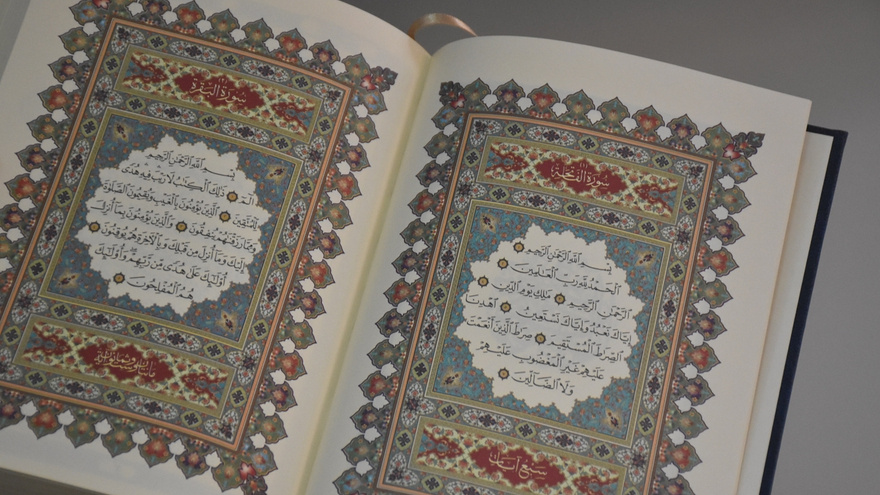 سُورَةُ الْفَاتِحَةِ
بِسْمِ اللَّهِ الرَّحْمَٰنِ الرَّحِيمِ
الْحَمْدُ لِلَّهِ رَبِّ الْعَالَمِينَ
الرَّحْمَٰنِ الرَّحِيمِ مَالِكِ يَوْمِ الدِّينِ
إِيَّاكَ نَعْبُدُ وَإِيَّاكَ نَسْتَعِينُ اهْدِنَا
الصِّرَاطَ الْمُسْتَقِيمَ صِرَاطَ الَّذِينَ أَنْعَمْتَ
عَلَيْهِمْ غَيْرِ الْمَغْضُوبِ عَلَيْهِمْ
وَلَا الضَّالِّينَ
سَبْعُ آيَاتٍ
سُورَةُ الْبَقَرَةِ
بِسْمِ اللَّهِ الرَّحْمَٰنِ الرَّحِيمِ
الٓمٓ ذَٰلِكَ الْكِتَابُ لَا رَيْبَ فِيهِ هُدًى
لِلْمُتَّقِينَ الَّذِينَ يُؤْمِنُونَ بِالْغَيْبِ وَيُقِيمُونَ الصَّلَوٰةَ
وَمِمَّا رَزَقْنَاهُمْ يُنْفِقُونَ وَالَّذِينَ يُؤْمِنُونَ بِمَا أُنْزِلَ
إِلَيْكَ وَمَا أُنْزِلَ مِنْ قَبْلِكَ وَبِالْآخِرَةِ هُمْ يُوقِنُونَ
أُولَٰئِكَ عَلَىٰ هُدًى مِنْ رَبِّهِمْ وَأُولَٰئِكَ
هُمُ الْمُفْلِحُونَ
مائتان وست وثمانون آية